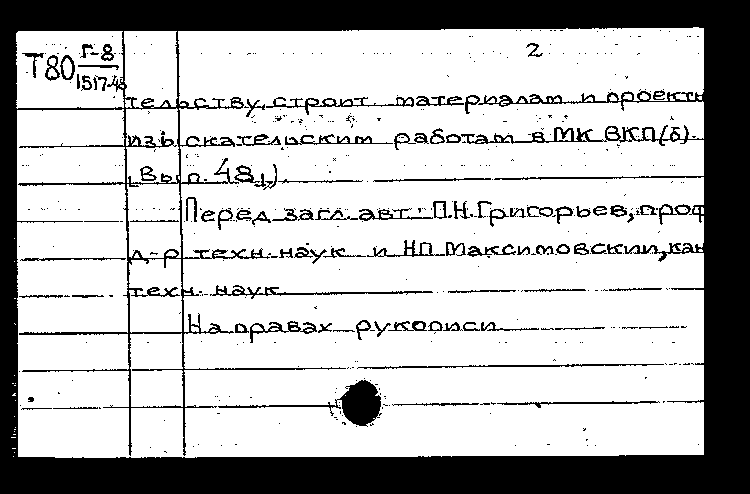 Т80 Г-8 2
1517-48
тельству, строит. материалам и проектн
изыскательским работам в МК ВКП(б).
[Вып. 48]).
Перед загл. авт.: П.Н.Григорьев, проф
д-р техн. наук и Н.П. Максимовский, кан
техн. наук
На правах рукописи